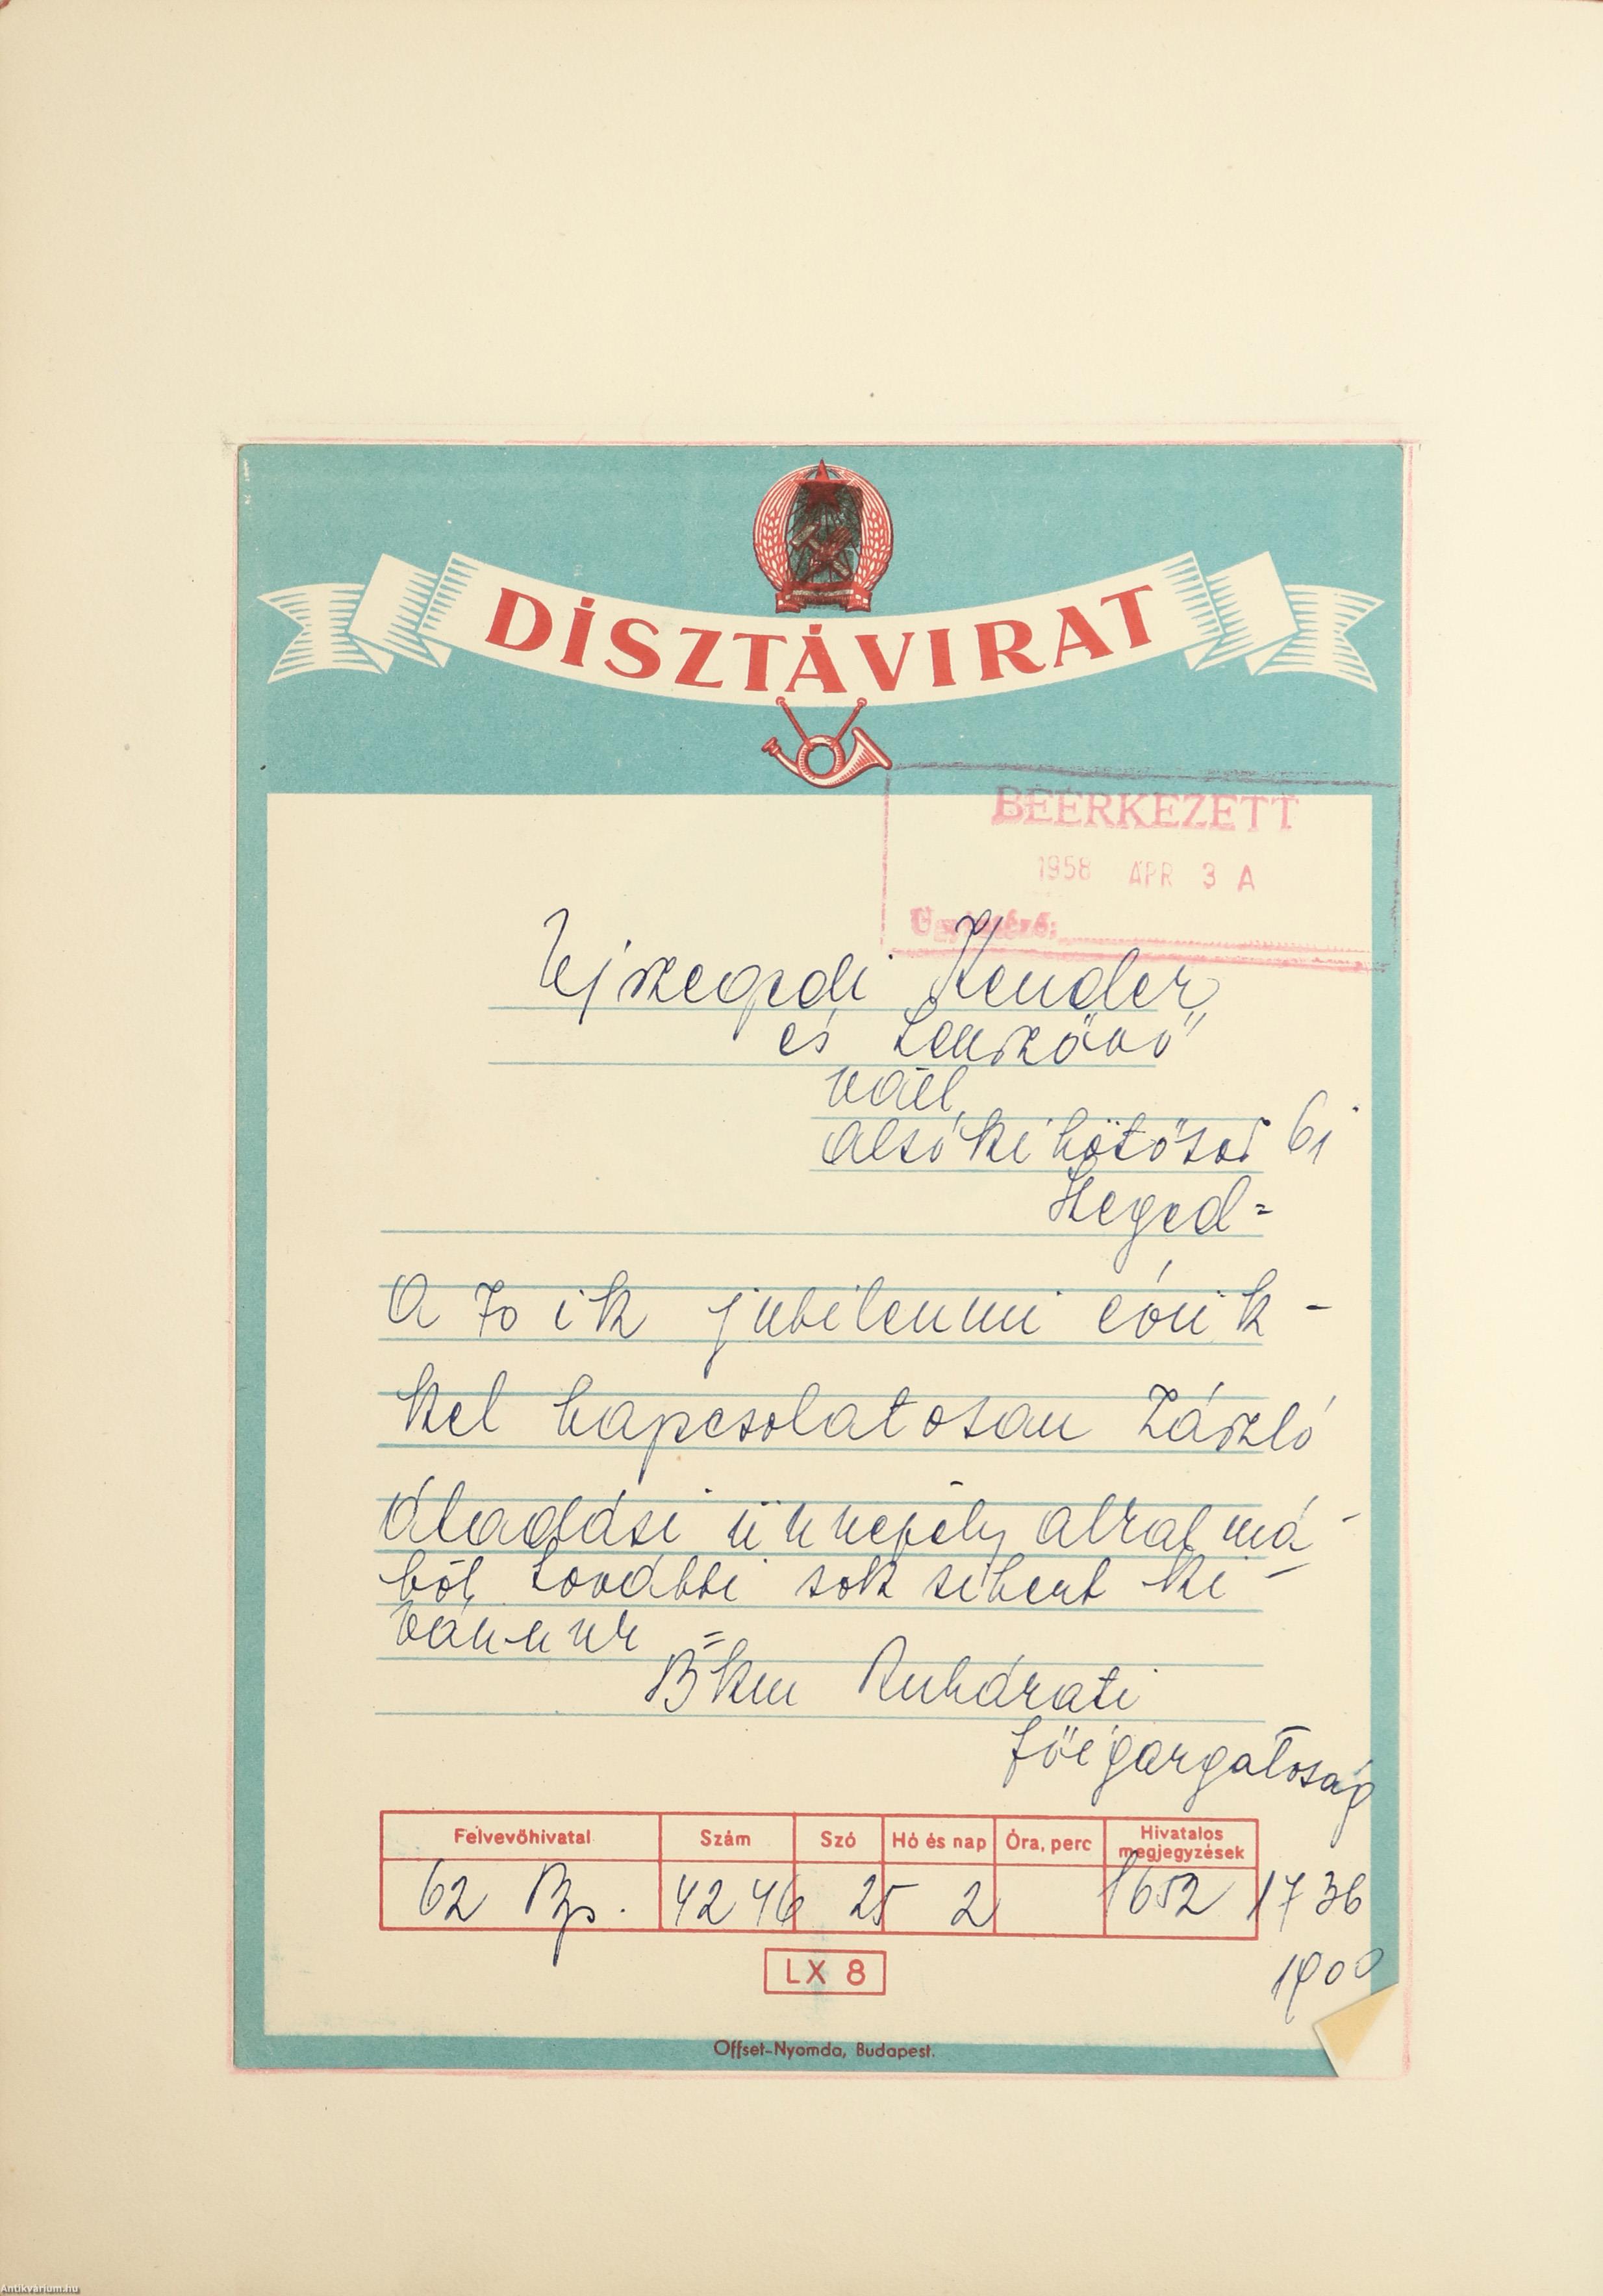 DÍSZTÁVIRAT
BEÉRKEZETT
1958 ÁPR 3 A
Ujszegedi Kender
és Lenszövő
váll
alsókikötősor 61
Szeged =
A 70 ik jubileumi évük-
kel kapcsolatosan Zászló
átadási ünnepély alkalmá-
ból, további sok sikert ki-
vánunk =
Bkm Ruházati
főigazgatóság
Felvevőhivatal Szám Szó Hó és nap Óra, perc Hivatalos megjegyzések
62 Bp. 4246 25 2 1652 1736
1900
LX 8
Offset-Nyomda, Budapest.
Antikvárium.hu